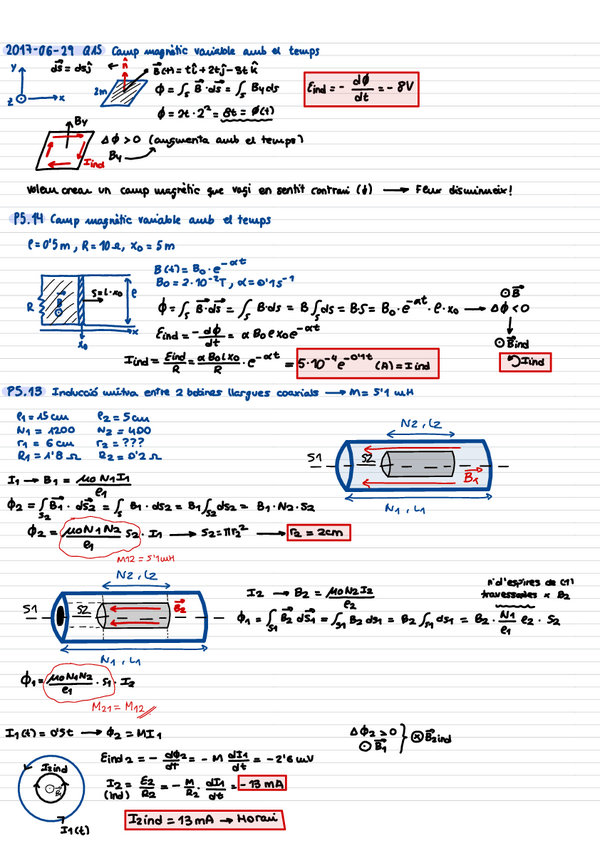 2017-06-29 Q15 Camp magnètic variable amb el temps
y
z
x
ds⃗ = dsĵ
n̂
B⃗(t) = tî + 2tĵ - 3tk̂
2m
ϕ = ∫s B⃗·ds⃗ = ∫s By ds
ϕ = 2t·2² = 8t = ϕ(t)
Eind = - dϕ/dt = -8V
By
Iind
Δϕ > 0 (augmenta amb el temps)
By
volem crear un camp magnètic que vagi en sentit contrari (↓) → Feur disminueix!
P5.14 Camp magnètic variable amb el temps
ℓ = 0'5 m, R = 10 Ω, x₀ = 5m
B(t) = B₀·e^-αt
B₀ = 2·10⁻²T, α = 0'1 s⁻¹
R
B⃗
S = ℓ·x₀
ℓ
x
x₀
ϕ = ∫s B⃗·ds⃗ = ∫s B·ds = B ∫s ds = B·S = B₀·e^-αt·ℓ·x₀ → ⊙B⃗ Δϕ < 0
Eind = -dϕ/dt = αB₀ℓx₀e^-αt
⊙B⃗ind
Iind = Eind/R = αB₀ℓx₀/R · e^-αt = 5·10⁻⁴e^-0'1t (A) = Iind
Iind
P5.13 Inducció mútua entre 2 bobines llargues coaxials → M = 5'1 mH
ℓ1 = 15cm ℓ2 = 5cm
N1 = 1200 N2 = 400
r1 = 6cm r2 = ???
R1 = 1'8 Ω R2 = 0'2 Ω
N2, L2
S1
S2
B⃗1
N1, L1
I1 → B1 = μ0N1I1/ℓ1
ϕ2 = ∫s2 B⃗1·ds⃗2 = ∫s B1·ds2 = B1∫s2 ds2 = B1·N2·S2
ϕ2 = μ0N1N2/ℓ1 S2·I1 → S2 = πr2² → r2 = 2cm
M12 = 5'1mH
N2, L2
S1
S2
B⃗2
N1, L1
I2 → B2 = μ0N2I2/ℓ2
nºd'espires de (1) travessades x B2
ϕ1 = ∫s1 B⃗2 ds⃗1 = ∫s1 B2 ds1 = B2 ∫s1 ds1 = B2·N1/ℓ1 ℓ2·S2
ϕ1 = μ0N1N2/ℓ1·S1·I2
M21 = M12
I1(t) = 0'5t → ϕ2 = MI1
Δϕ2 > 0
⊙B⃗1
⊗B⃗2ind
Eind2 = - dϕ2/dt = -M dI1/dt = -2'6 mV
I2ind
B⃗1
I1(t)
I2 (ind) = E2/R2 = -M/R2·dI1/dt = -13 mA
I2ind = 13mA → Horari